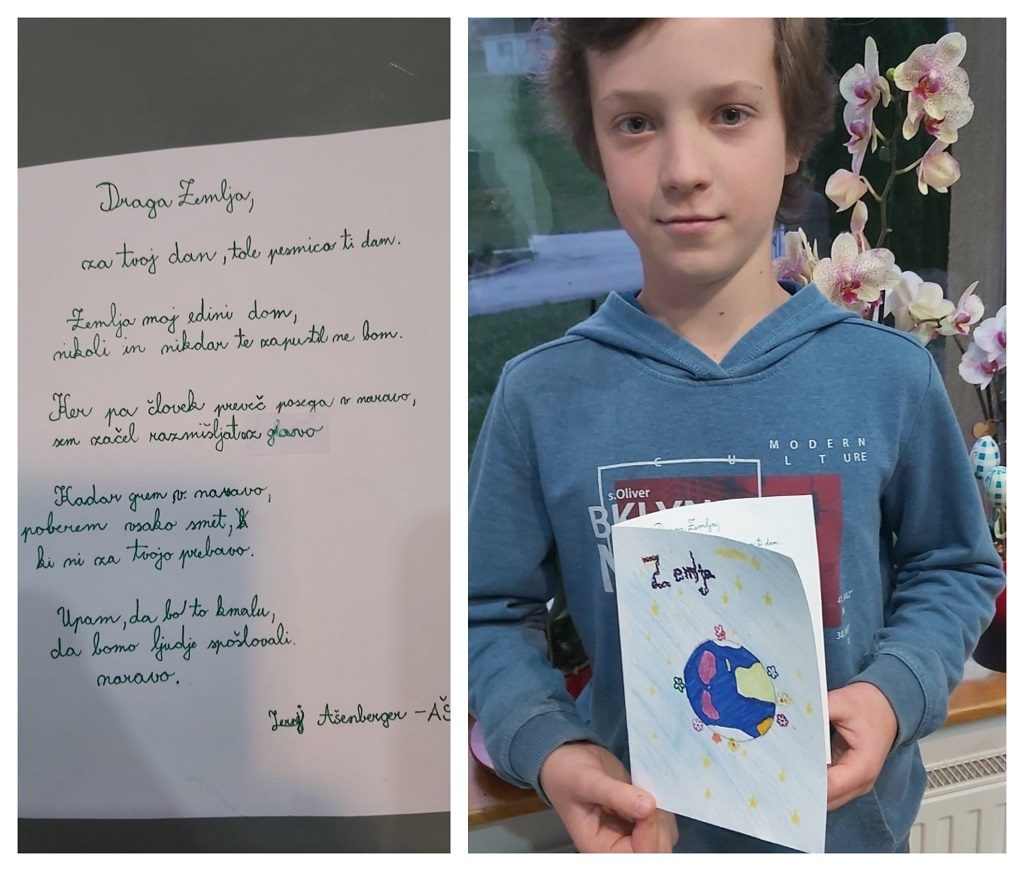 Draga Zemlja,
za tvoj dan, tole pesmico ti dam.
Zemlja moj edini dom,
nikoli in nikdar te zapustil ne bom.
Ker pa človek preveč posega v naravo,
sem začel razmišljat z glavo
Kadar grem v naravo,
poberem vsako smet,
ki ni za tvojo prebavo.
Upam, da bo to kmalu,
da bomo ljudje spoštovali
naravo.
Ašenberger - AŠ
MODERN
C U L T URE
s.Oliver
BKLYN
N
Draga Zemlja,
ti dam.
Zemlja